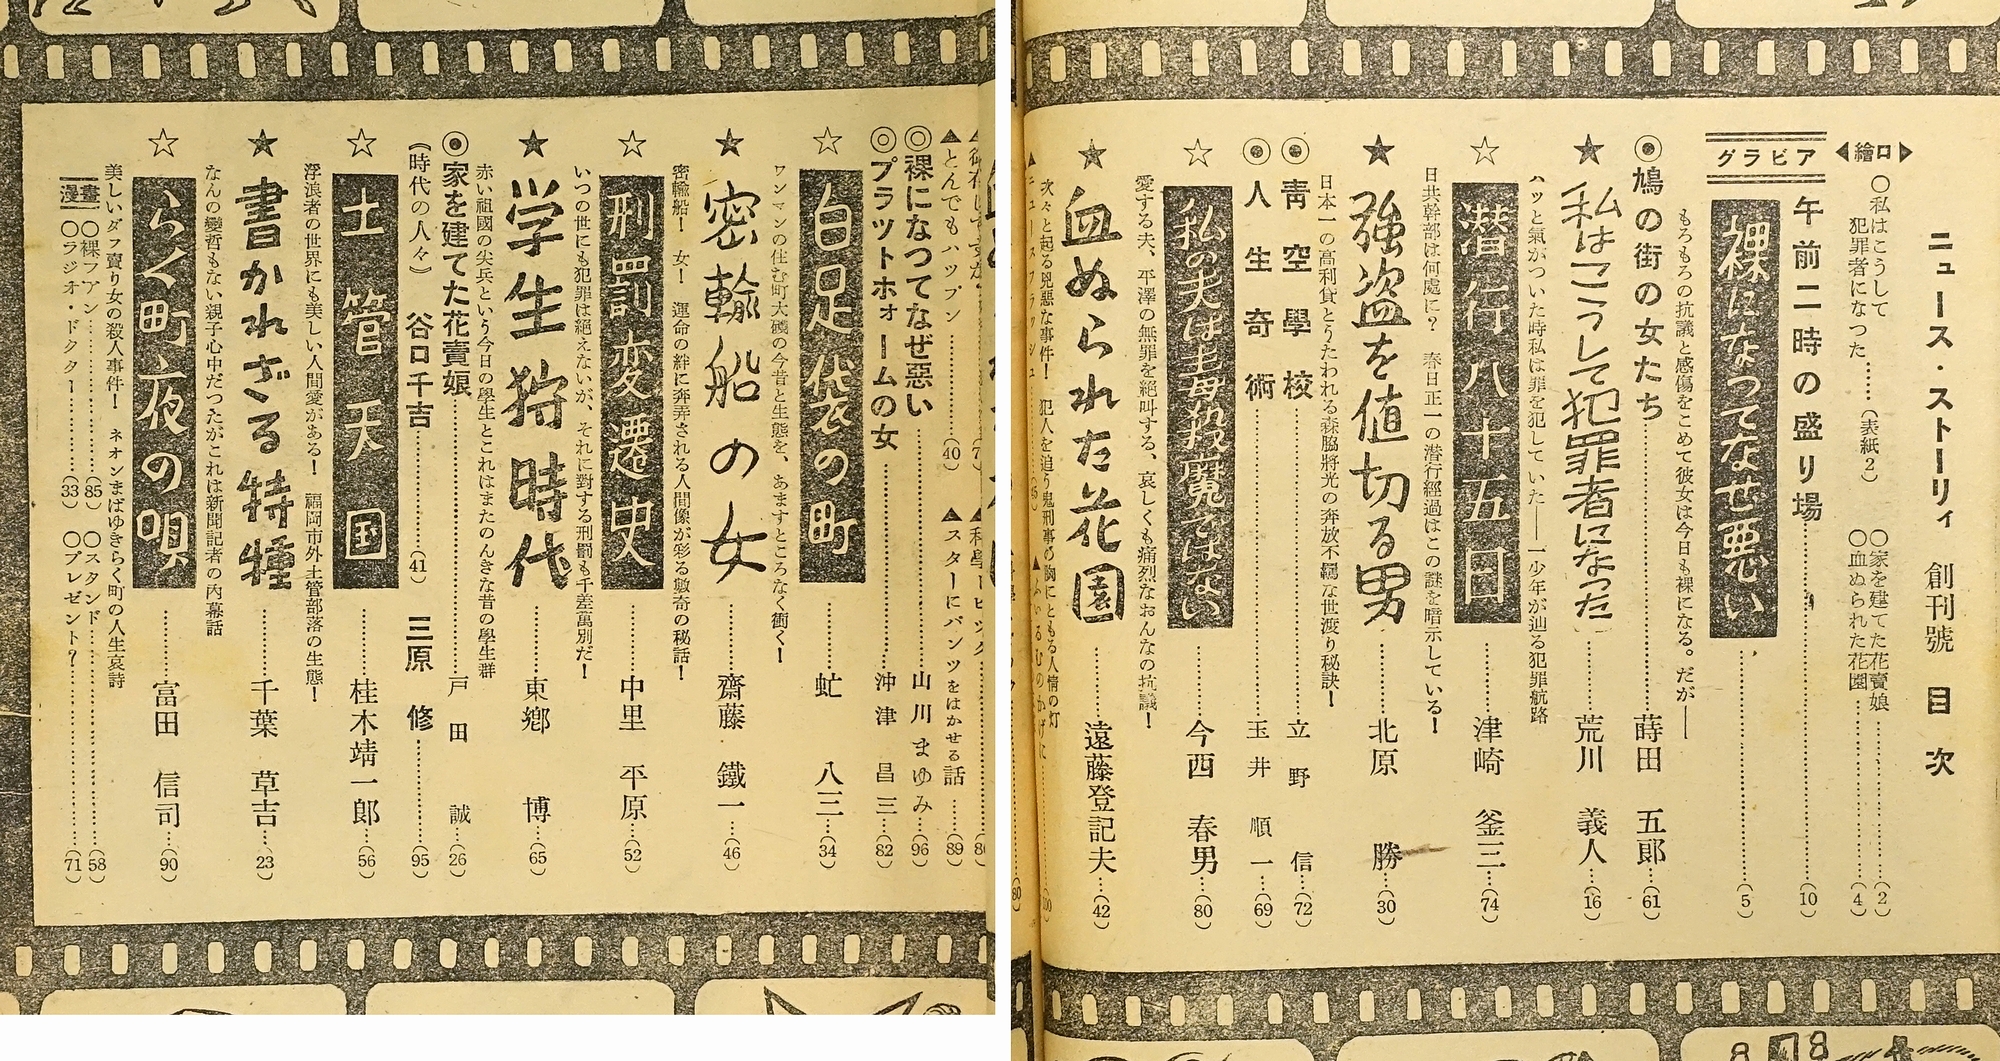 ニュース・ストーリィ 創刊號 目次
繪口
○私はこうして犯罪者になつた……(表紙2)
○家を建てた花賣娘……(2)
○血ぬられた花園……(4)
グラビア
午前二時の盛り場……(10)
裸になつてなぜ悪い……(5)
もろもろの抗議と感傷をこめて彼女は今日も裸になる。だが――
◉鳩の街の女たち……蒔田五郎……(61)
★私はこうして犯罪者になった……荒川義人……(16)
ハッと氣がついた時私は罪を犯していた――一少年が辿る犯罪航路
☆潜行八十五日……津崎釜三……(74)
日共幹部は何處に? 春日正一の潜行經過はこの謎を暗示している!
★強盗を値切る男……北原勝……(30)
日本一の高利貸とうたわれる森脇將光の奔放不羈な世渡り秘訣!
◉靑空學校……立野信一……(72)
◉人生奇術……玉井順一……(69)
☆私の夫は毒殺魔ではない……今西春男……(80)
愛する夫、平澤の無罪を絶叫する、哀しくも痛烈なおんなの抗議!
★血ぬられた花園……遠藤登記夫……(42)
次々と起る兇惡な事件! 犯人を追う鬼刑事の胸にともる人情の灯
▲とんでもハップン……(40)
▲スターにパンツをはかせる話……(89)
◎裸になつてなぜ惡い……山川まゆみ……(96)
◎プラットホォームの女……沖津昌三……(82)
☆白足袋の町……虻八三……(34)
ワンマンの住む町大磯の今昔と生態を、あますところなく衝く!
★密輸船の女……齋藤鐵一……(46)
密輸船! 女! 運命の絆に奔弄される人間像が彩る數奇の秘話!
☆刑罰変遷史……中里平原……(52)
いつの世にも犯罪は絶えないが、それに對する刑罰も千差萬別だ!
★学生狩時代……東郷博……(65)
赤い祖國の尖兵という今日の學生とこれはまたのんきな昔の學生群
◉家を建てた花賣娘……戸田誠……(26)
(時代の人々) 谷口千吉……(41) 三原修……(95)
☆土管天国……桂木靖一郎……(56)
浮浪者の世界にも美しい人間愛がある! 福岡市外土管部落の生態!
★書かれざる特種……千葉草吉……(23)
なんの變哲もない親子心中だつたがこれは新聞記者の内幕話
☆らく町夜の唄……富田信司……(90)
美しいダフ賣り女の殺人事件! ネオンまばゆきらく町の人生哀詩
漫畫
○裸フアン……(85) ○スタンド……(58)
○ラジオ・ドクター……(33) ○プレゼント?……(71)